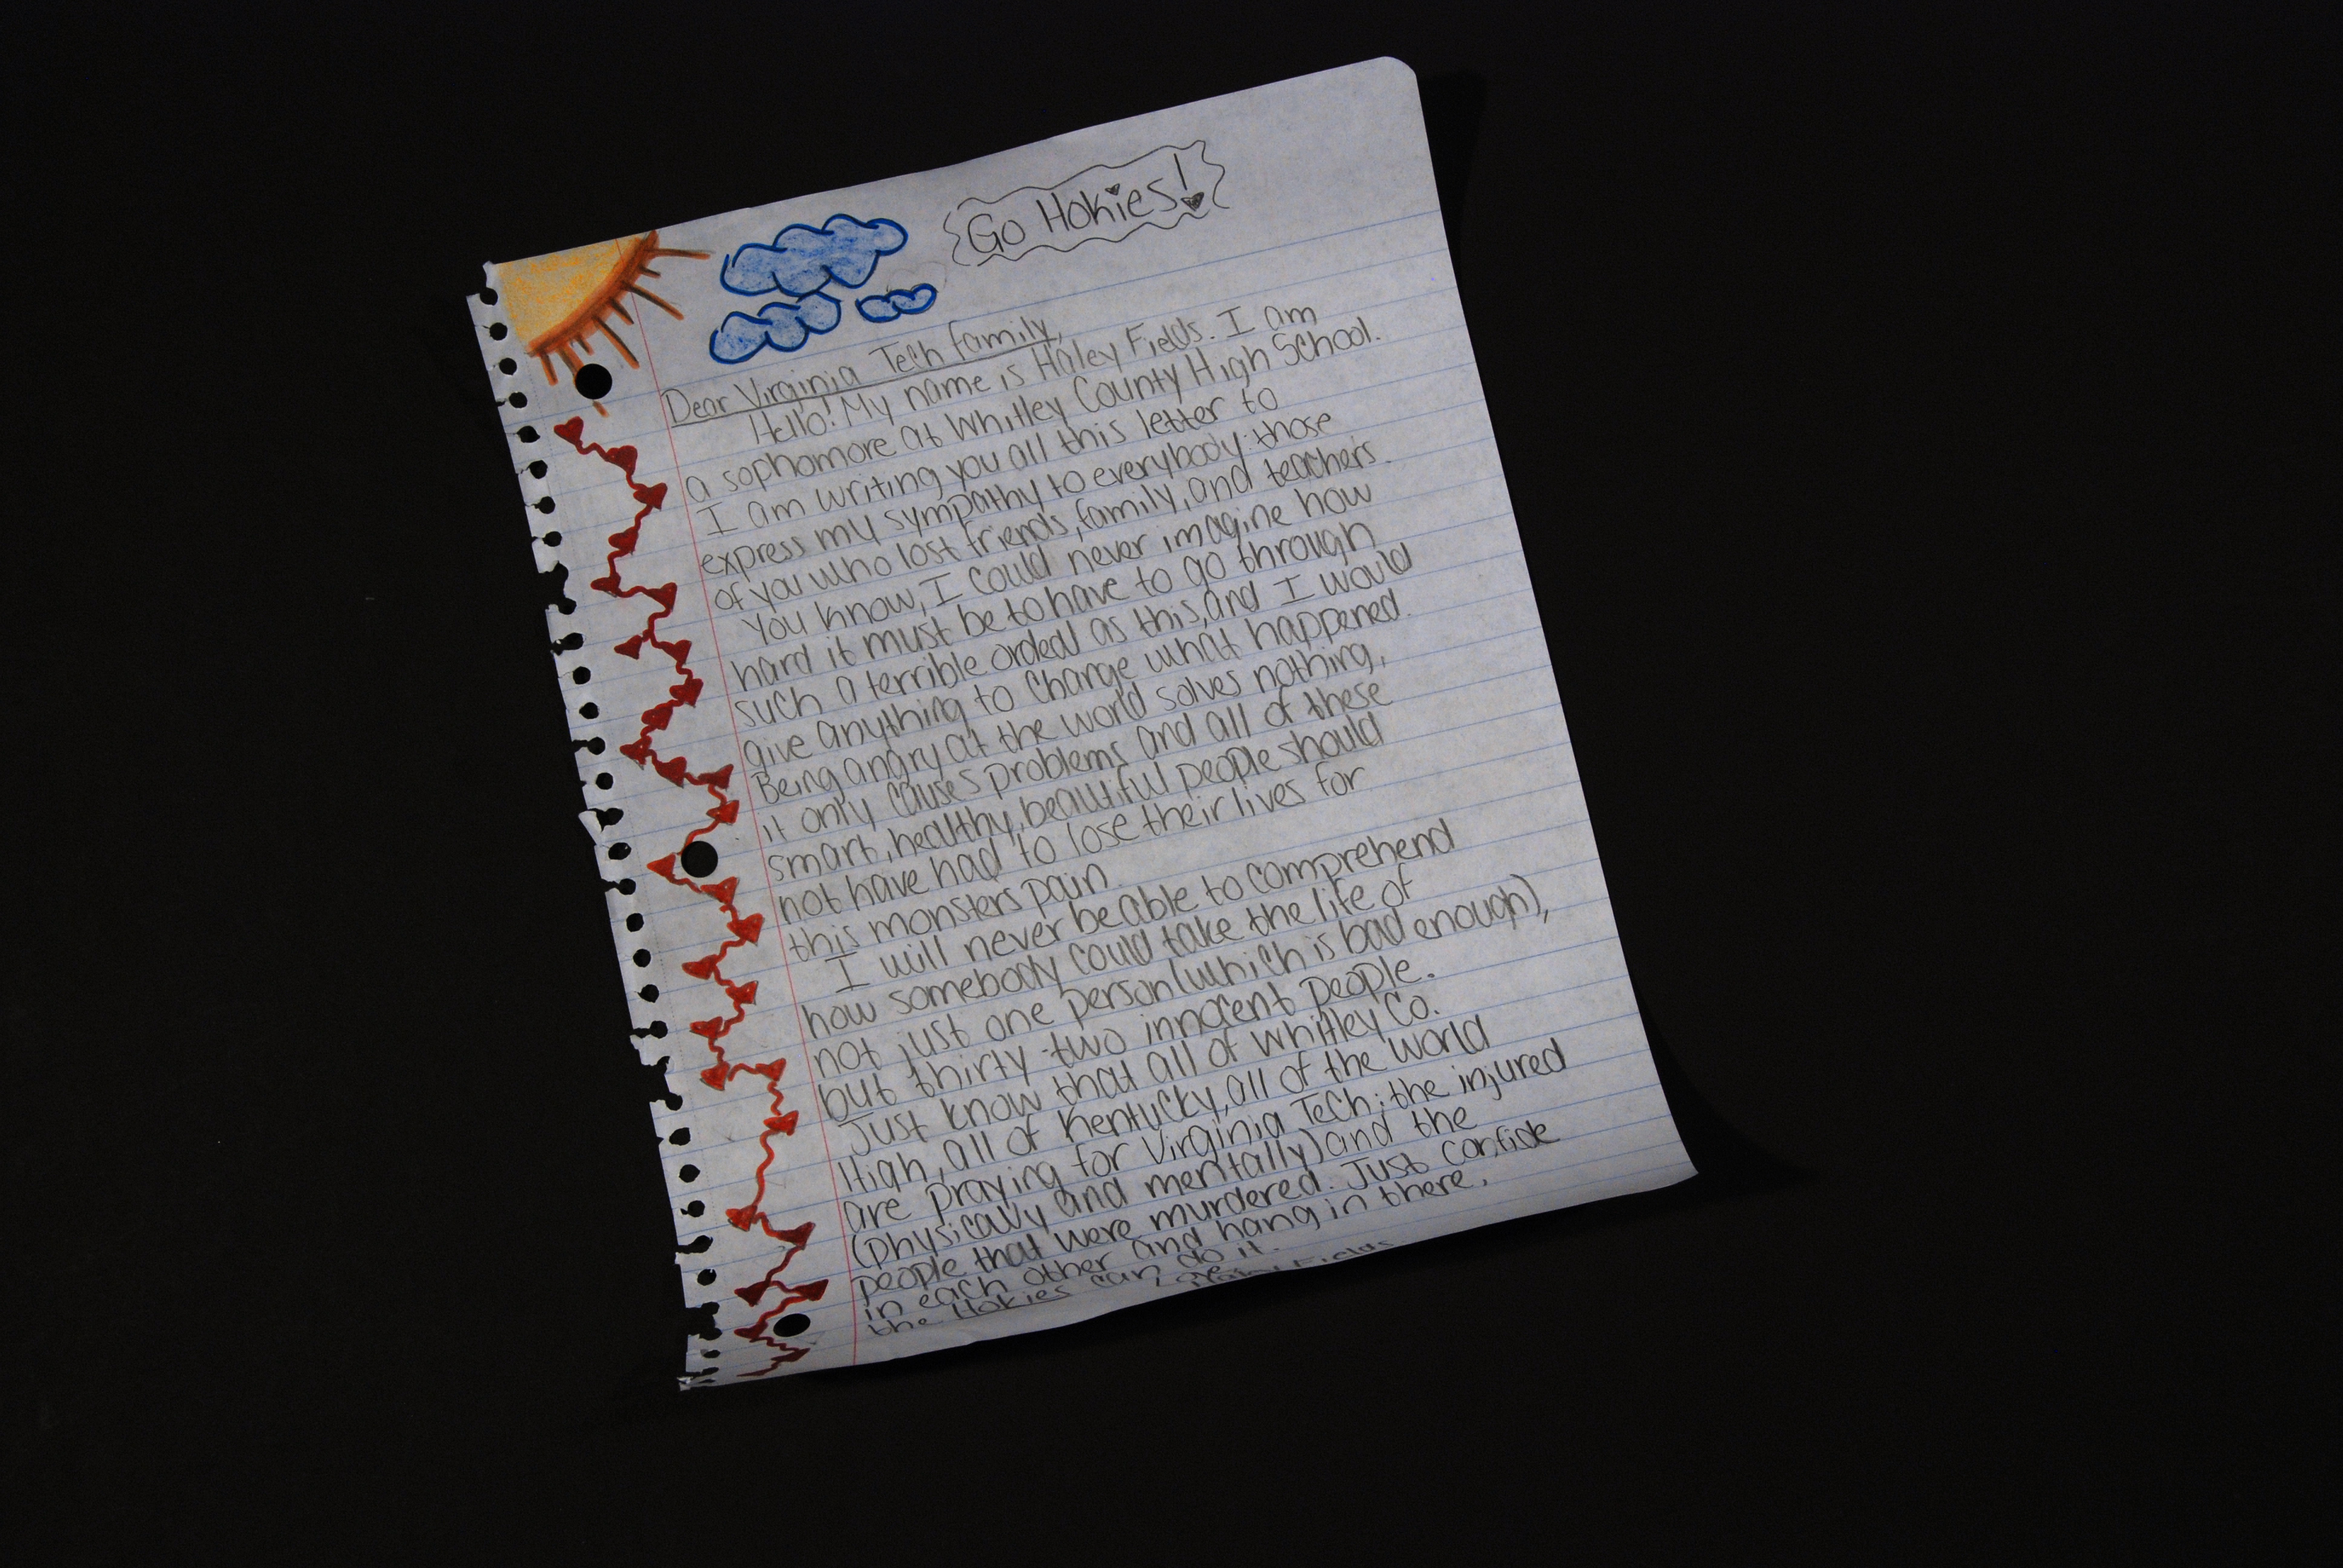 Go Hokies!
Dear Virginia Tech family,
Hello! My name is Haley Fields. I am
a sophomore at Whitley County High School.
I am writing you all this letter to
express my sympathy to everybody: those
of you who lost friends, family, and teachers.
You know, I could never imagine how
hard it must be to have to go through
such a terrible ordeal as this, and I would
give anything to change what happened.
Being angry at the world solves nothing,
it only causes problems and all of these
smart, healthy, beautiful people should
not have had to lose their lives for
this monsters pain.
I will never be able to comprehend
how somebody could take the life of
not just one person (which is bad enough),
but thirty-two innocent people.
Just know that all of Whitley Co.
High, all of Kentucky, all of the world
are praying for Virginia Tech; the injured
(physically and mentally) and the
people that were murdered. Just confide
in each other and hang in there,
the Hokies can do it.
Love
Fields